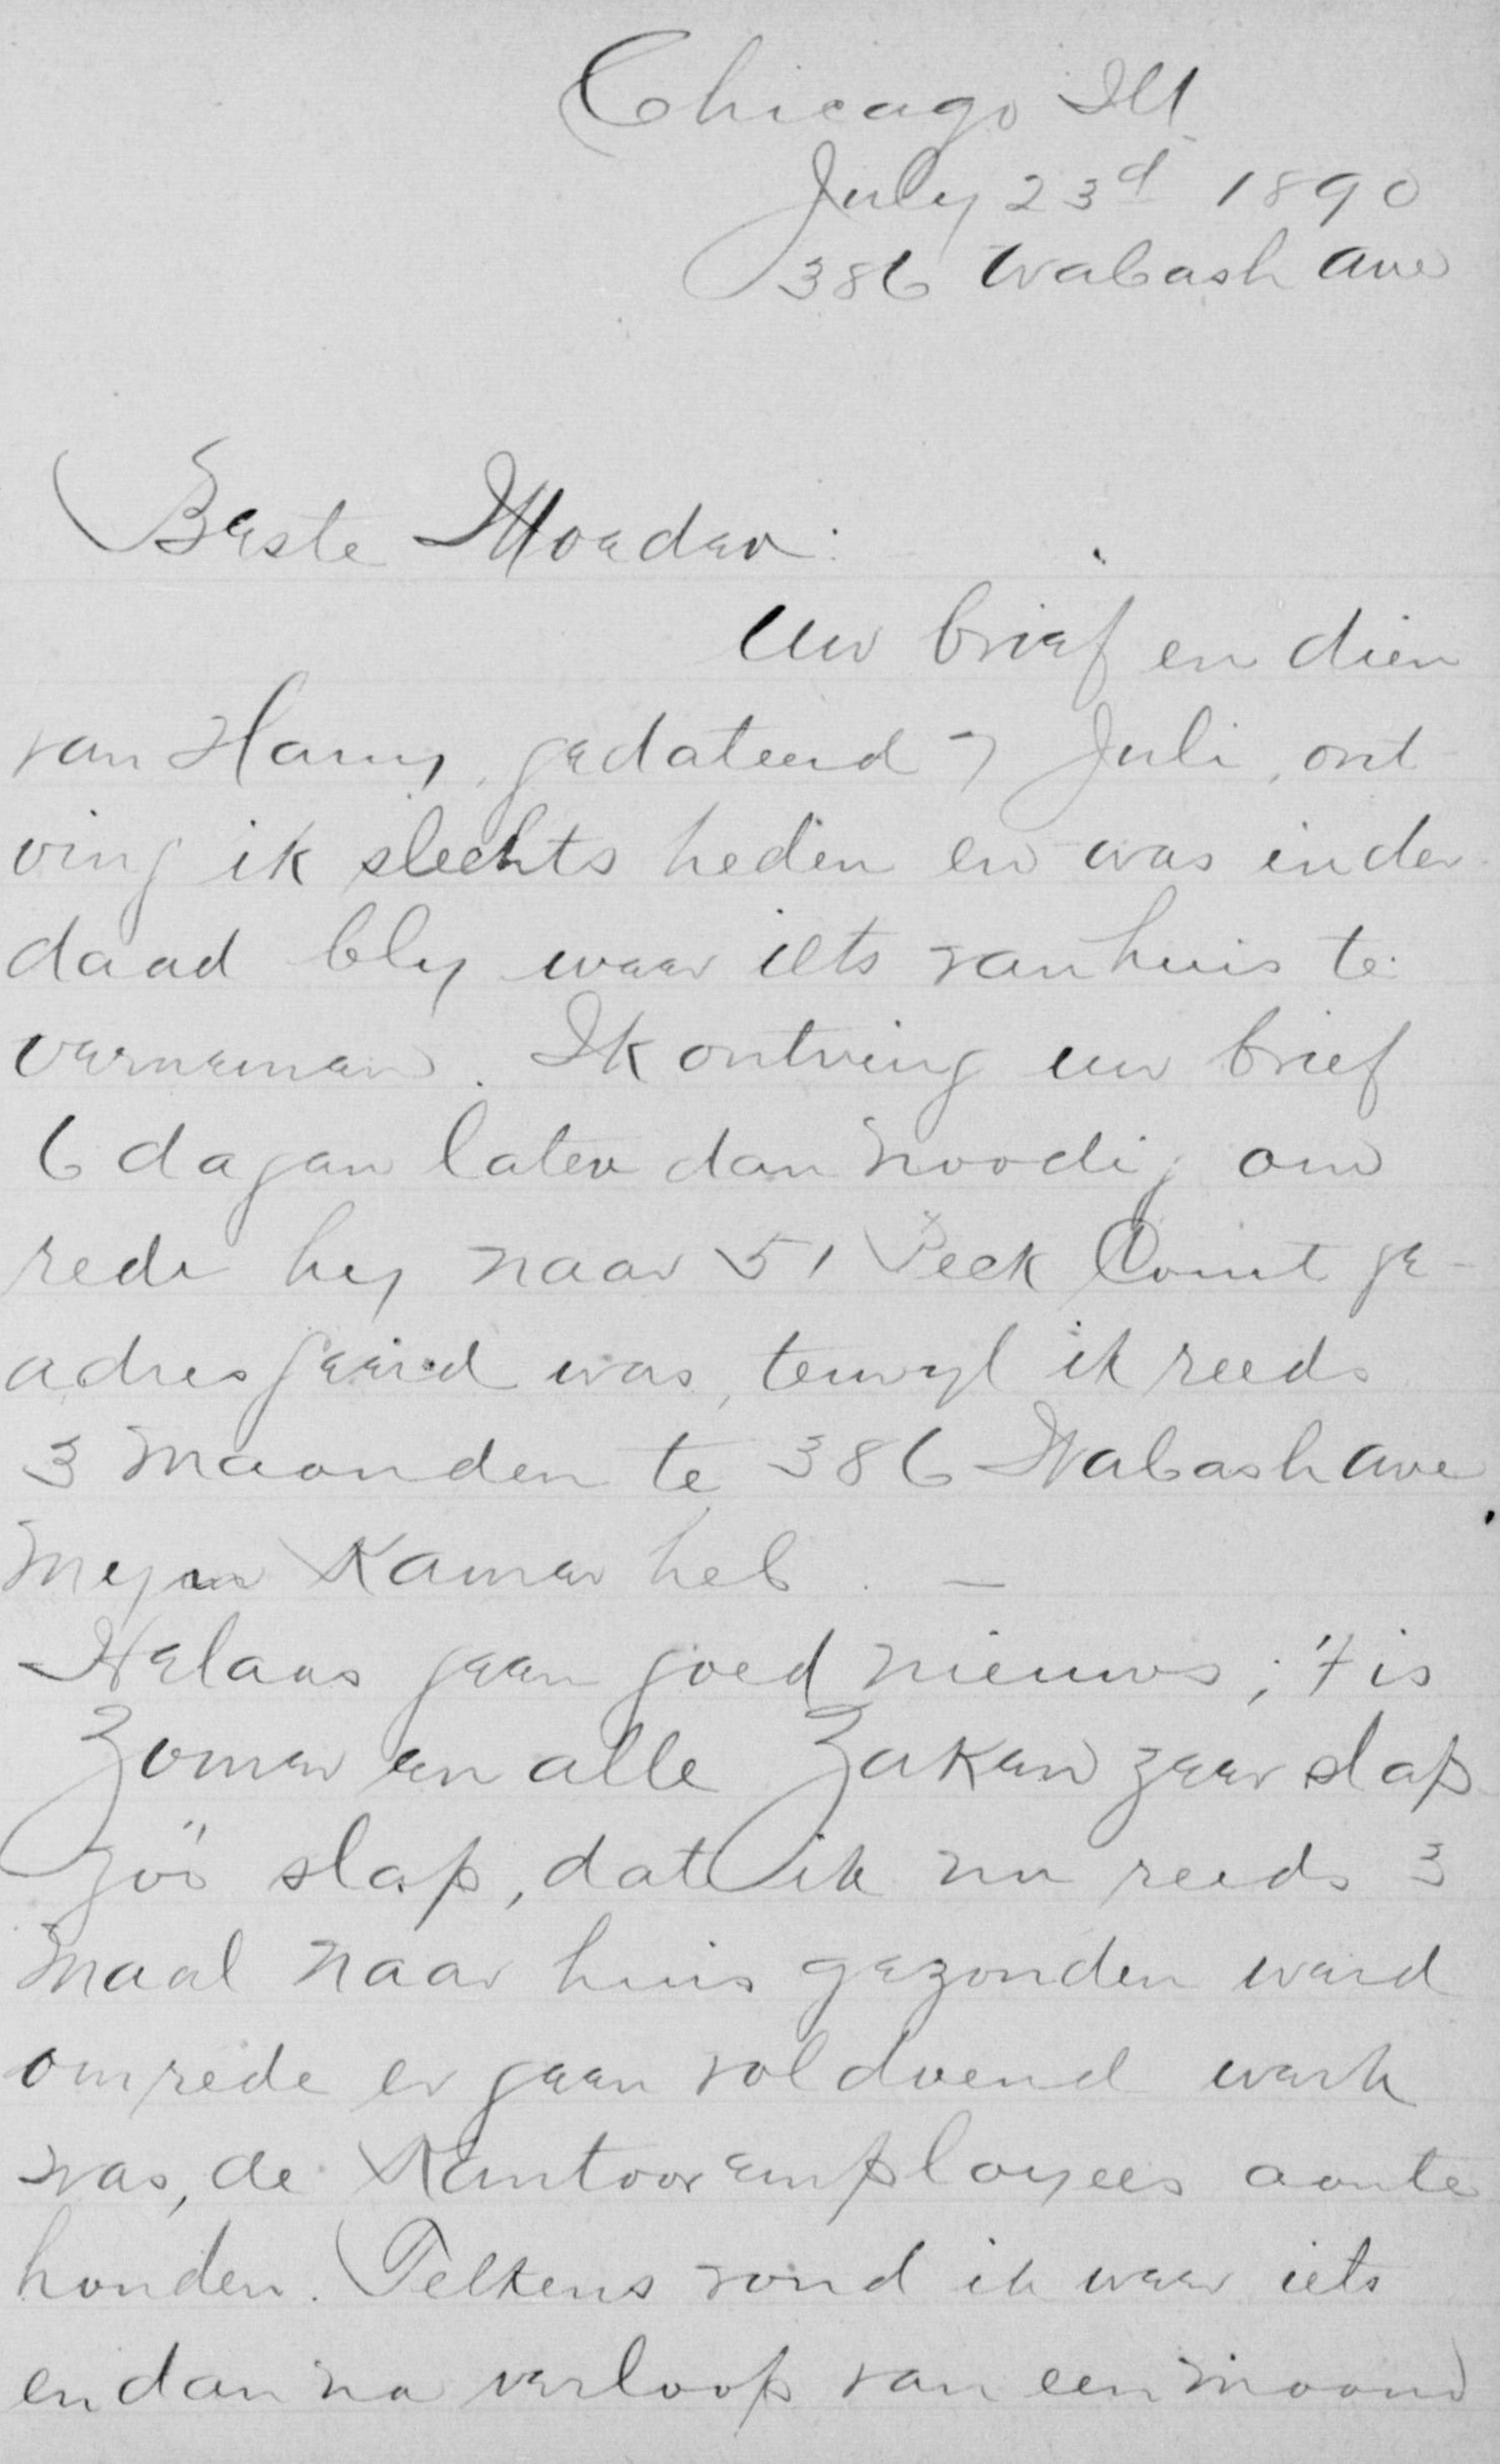 Chicago Ill
July 23d 1890
386 Wabash Ave
Beste Moeder:
Uw brief en dien
van Harry, gedateerd 7 Juli, ont
ving ik slechts heden en was inder
daad bly weer iets van huis te
vernemen. Ik ontving uw brief
6 dagen later dan noodig om
rede hy naar 51 Peck Court ge-
adresseerd was, terwyl ik reeds
3 maanden te 386 Wabash Ave
myn Kamer heb. —
Helaas geen goed nieuws; 't is
Zomer en alle Zaken zeer slap
zóó slap, dat ik nu reeds 3
maal naar huis gezonden werd
omrede er geen voldoend werk
was, de Kantooremployees aan te
houden. Telkens vond ik weer iets
en dan na verloop van een maand